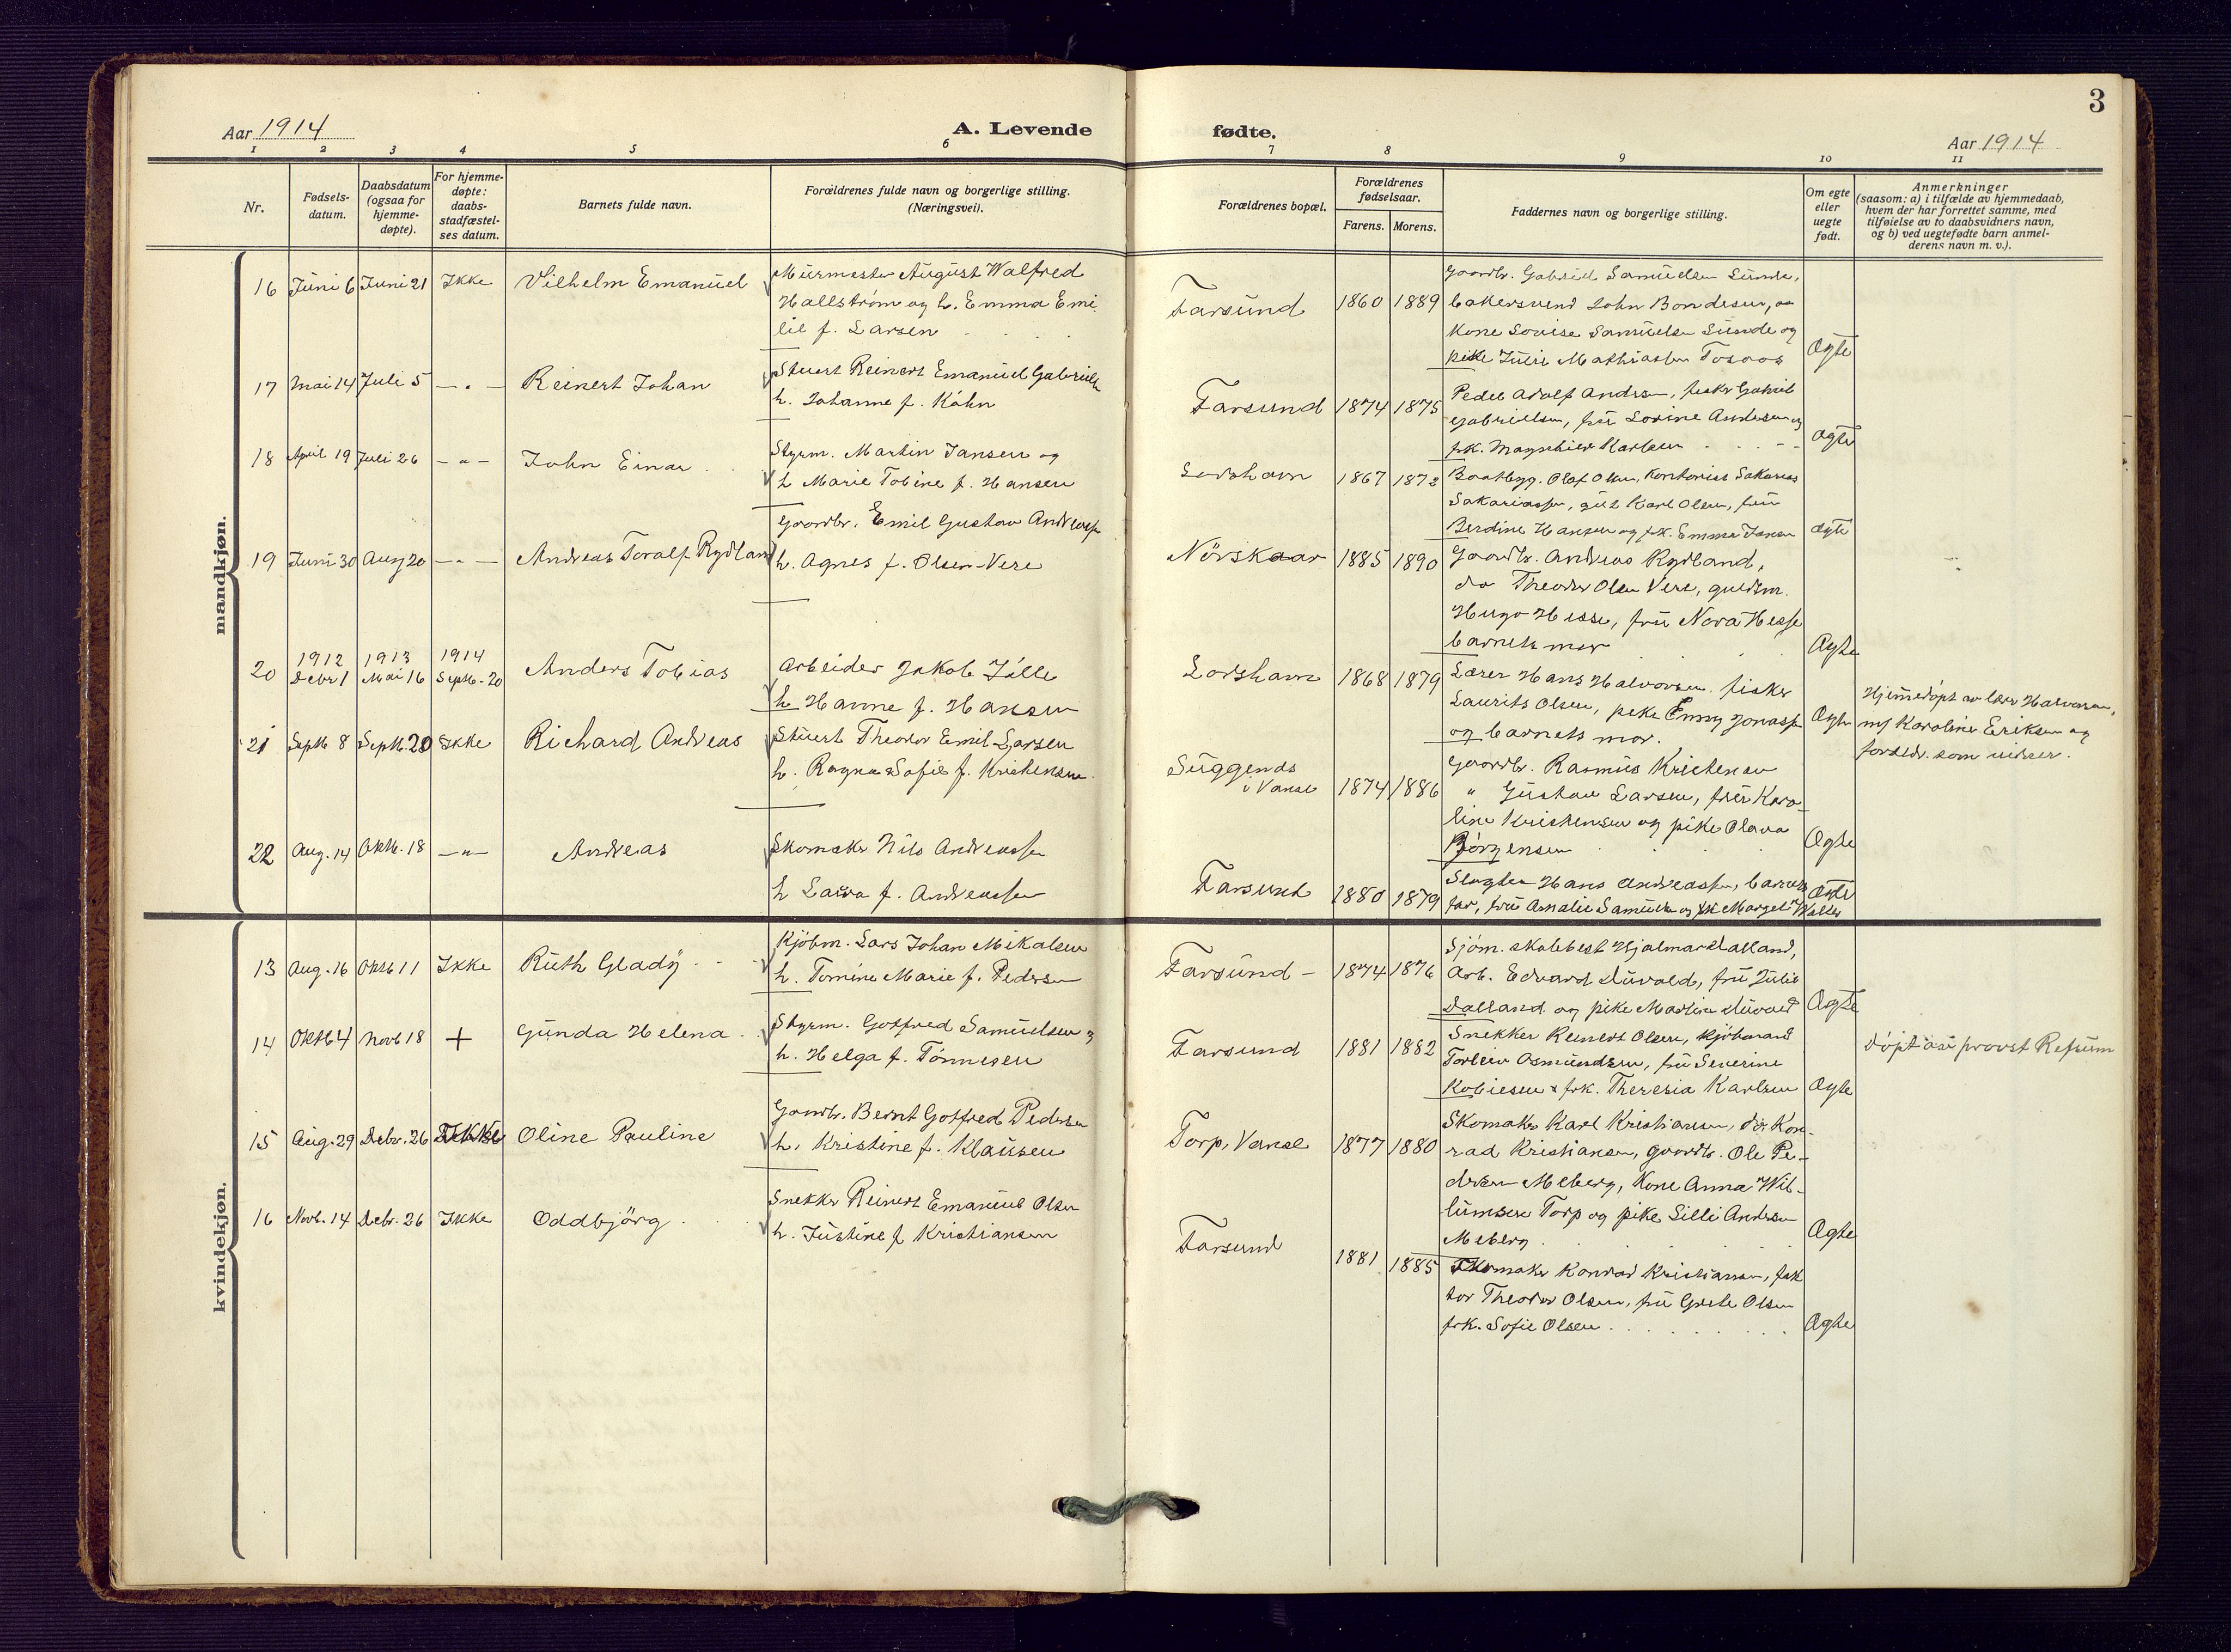 3
Aar 1914
A. Levende
fødte.
Aar 1914
1 2 3 4 5 6 7 8 9 10 11
Nr.
Fødsels-
datum.
Daabsdatum
(ogsaa for
hjemme-
døpte).
For hjemme-
døpte:
daabs-
stadfæstel-
ses datum.
Barnets fulde navn.
Forældrenes fulde navn og borgerlige stilling.
(Næringsvei).
Forældrenes bopæl.
Forældrenes
fødselsaar.
Farens. Morens.
Faddernes navn og borgerlige stilling.
Om egte
eller
uegte
født.
Anmerkninger
(saasom: a) i tilfælde av hjemmedaab,
hvem der har forrettet samme, med
tilføielse av to daabsvidners navn,
og b) ved uegtefødte barn anmel-
derens navn m. v.).
mandkjøn.
16 Juni 6 Juni 21 Ikke Vilhelm Emanuel
Murmester August Walfred
Hallström og h. Emma Emi-
lie f. Larsen
Farsund 1860 1889
Gaardbr. Gabriel Samuelsen Sunde,
bakersvend John Bondesen,
Kone Louise Samuelsen Sunde og
pike Julie Mathiassen
Ægte
17 Mai 14 Juli 5 — " — Reinert Johan
Stuert Reinert Emanuel Gabriels
h. Johanne f. Kåhn
Farsund 1874 1875
Peder Adolf Andersen, fisker Gabriel
Gabrielsen, fru Lovine Andersen og
frk. Magnhild Karlsen
Ægte
18 April 19 Juli 26 — " — John Einar
Styrm. Martin Jansen og
h Marie Tobine f. Hansen
Loshavn 1867 1872
Baatbyg. Olaf Olsen, Kontorist Sakarias
Sakariassen, gut Karl Olsen, fru
Berdine Hansen og frk. Emma Jansen
Ægte
19 Juni 30 Aug 20 — " — Andreas Toralf Rydland
Gaardbr. Emil Gustav Andreass
h. Agnes f. Olsen-Vere
Nörskaar 1885 1890
Gaardbr. Andreas Rydland,
do Theodor Olsen Vere, guldsm.
Hugo Hesse, fru Nora Hesse
barnets mor
Ægte
20 1912 Debr 1 1913 Mai 16 1914 Septb. 20 Anders Tobias
Arbeider Jakob Jölle
h Hanne f. Hansen
Loshavn 1868 1879
Lærer Hans Halvorsen, fisker
Laurits Olsen, pike Emmy Jonass
og barnets mor.
Ægte
Hjemedöpt av lærer Halvorsen,
mf Karoline Eriksen og
foreldr. som vidner.
21 Septb 8 Septb. 20 Ikke Richard Andreas
Stuert Theodor Emil Larsen
h. Ragna Sofie f. Kristensen
Suggends
i Vanse 1874 1886
Gaardbr. Rasmus Kristensen
" Gustav Larsen, fru Karo-
line Kristensen og pike Olava
Börgensen
Ægte
22 Aug. 14 Oktb. 18 — " — Andreas
Skomaker Nils Andreassen
h Laura f. Andreassen
Farsund 1880 1879
Slagter Hans Andreassen, barnets
far, fru Amalie Samuelsen og frk Margot Walter
Ægte
kvindekjøn.
13 Aug. 16 Oktb 11 Ikke Ruth Gladÿ
Kjöbm. Lars Johan Mikalsen
h. Tomine Marie f. Pedersen
Farsund 1874 1876
Sjöm. skolebest Hjalmar Dalland,
Arb. Edvard Duvold, fru Julie
Dalland og pike Martine Duvold
Ægte
14 Oktb 4 Novb 18 + Gunda Helena
Styrm. Gotfred Samuelsen og
h. Helga f. Tönnesen
Farsund 1881 1882
Snekker Reinert Olsen, Kjöbmand
Torleiv Osmundsen, fru Severine
Tobiesen & frk. Theresia Karlsen
Ægte
Döpt av provst Refsum
15 Aug. 29 Debr. 26 Ikke Oline Pauline
Gaardbr. Bernt Gotfred Pedersen
h. Kristine f. Klausen
Torp, Vanse 1877 1880
Skomaker Karl Kristiansen, do Kon-
rad Kristiansen, gaardbr. Ole Pe-
dersen Meberg, Kone Anna Wil-
lumsen Torp og pike Silli Andersen
Meberg
Ægte
16 Novb. 14 Debr. 26 Ikke Oddbjörg
Snekker Reinert Emanuel Olsen
h. Justine f Kristiansen
Farsund 1881 1885
Skomaker Konrad Kristiansen, fak
tor Theodor Olsen, fru Grete Olsen
frk. Sofie Olsen
Ægte